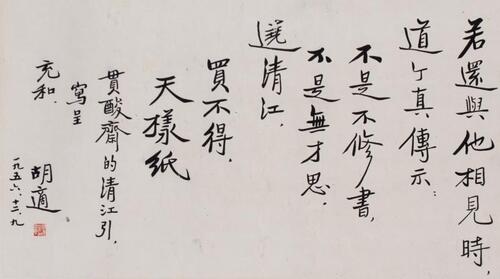 若還與他相見時，
道个真傳示：
不是不修書，
不是無才思，
遶清江，
買不得，
天樣紙
貫酸齋的清江引，
寫呈
充和．
胡適
一九五六、十二、九